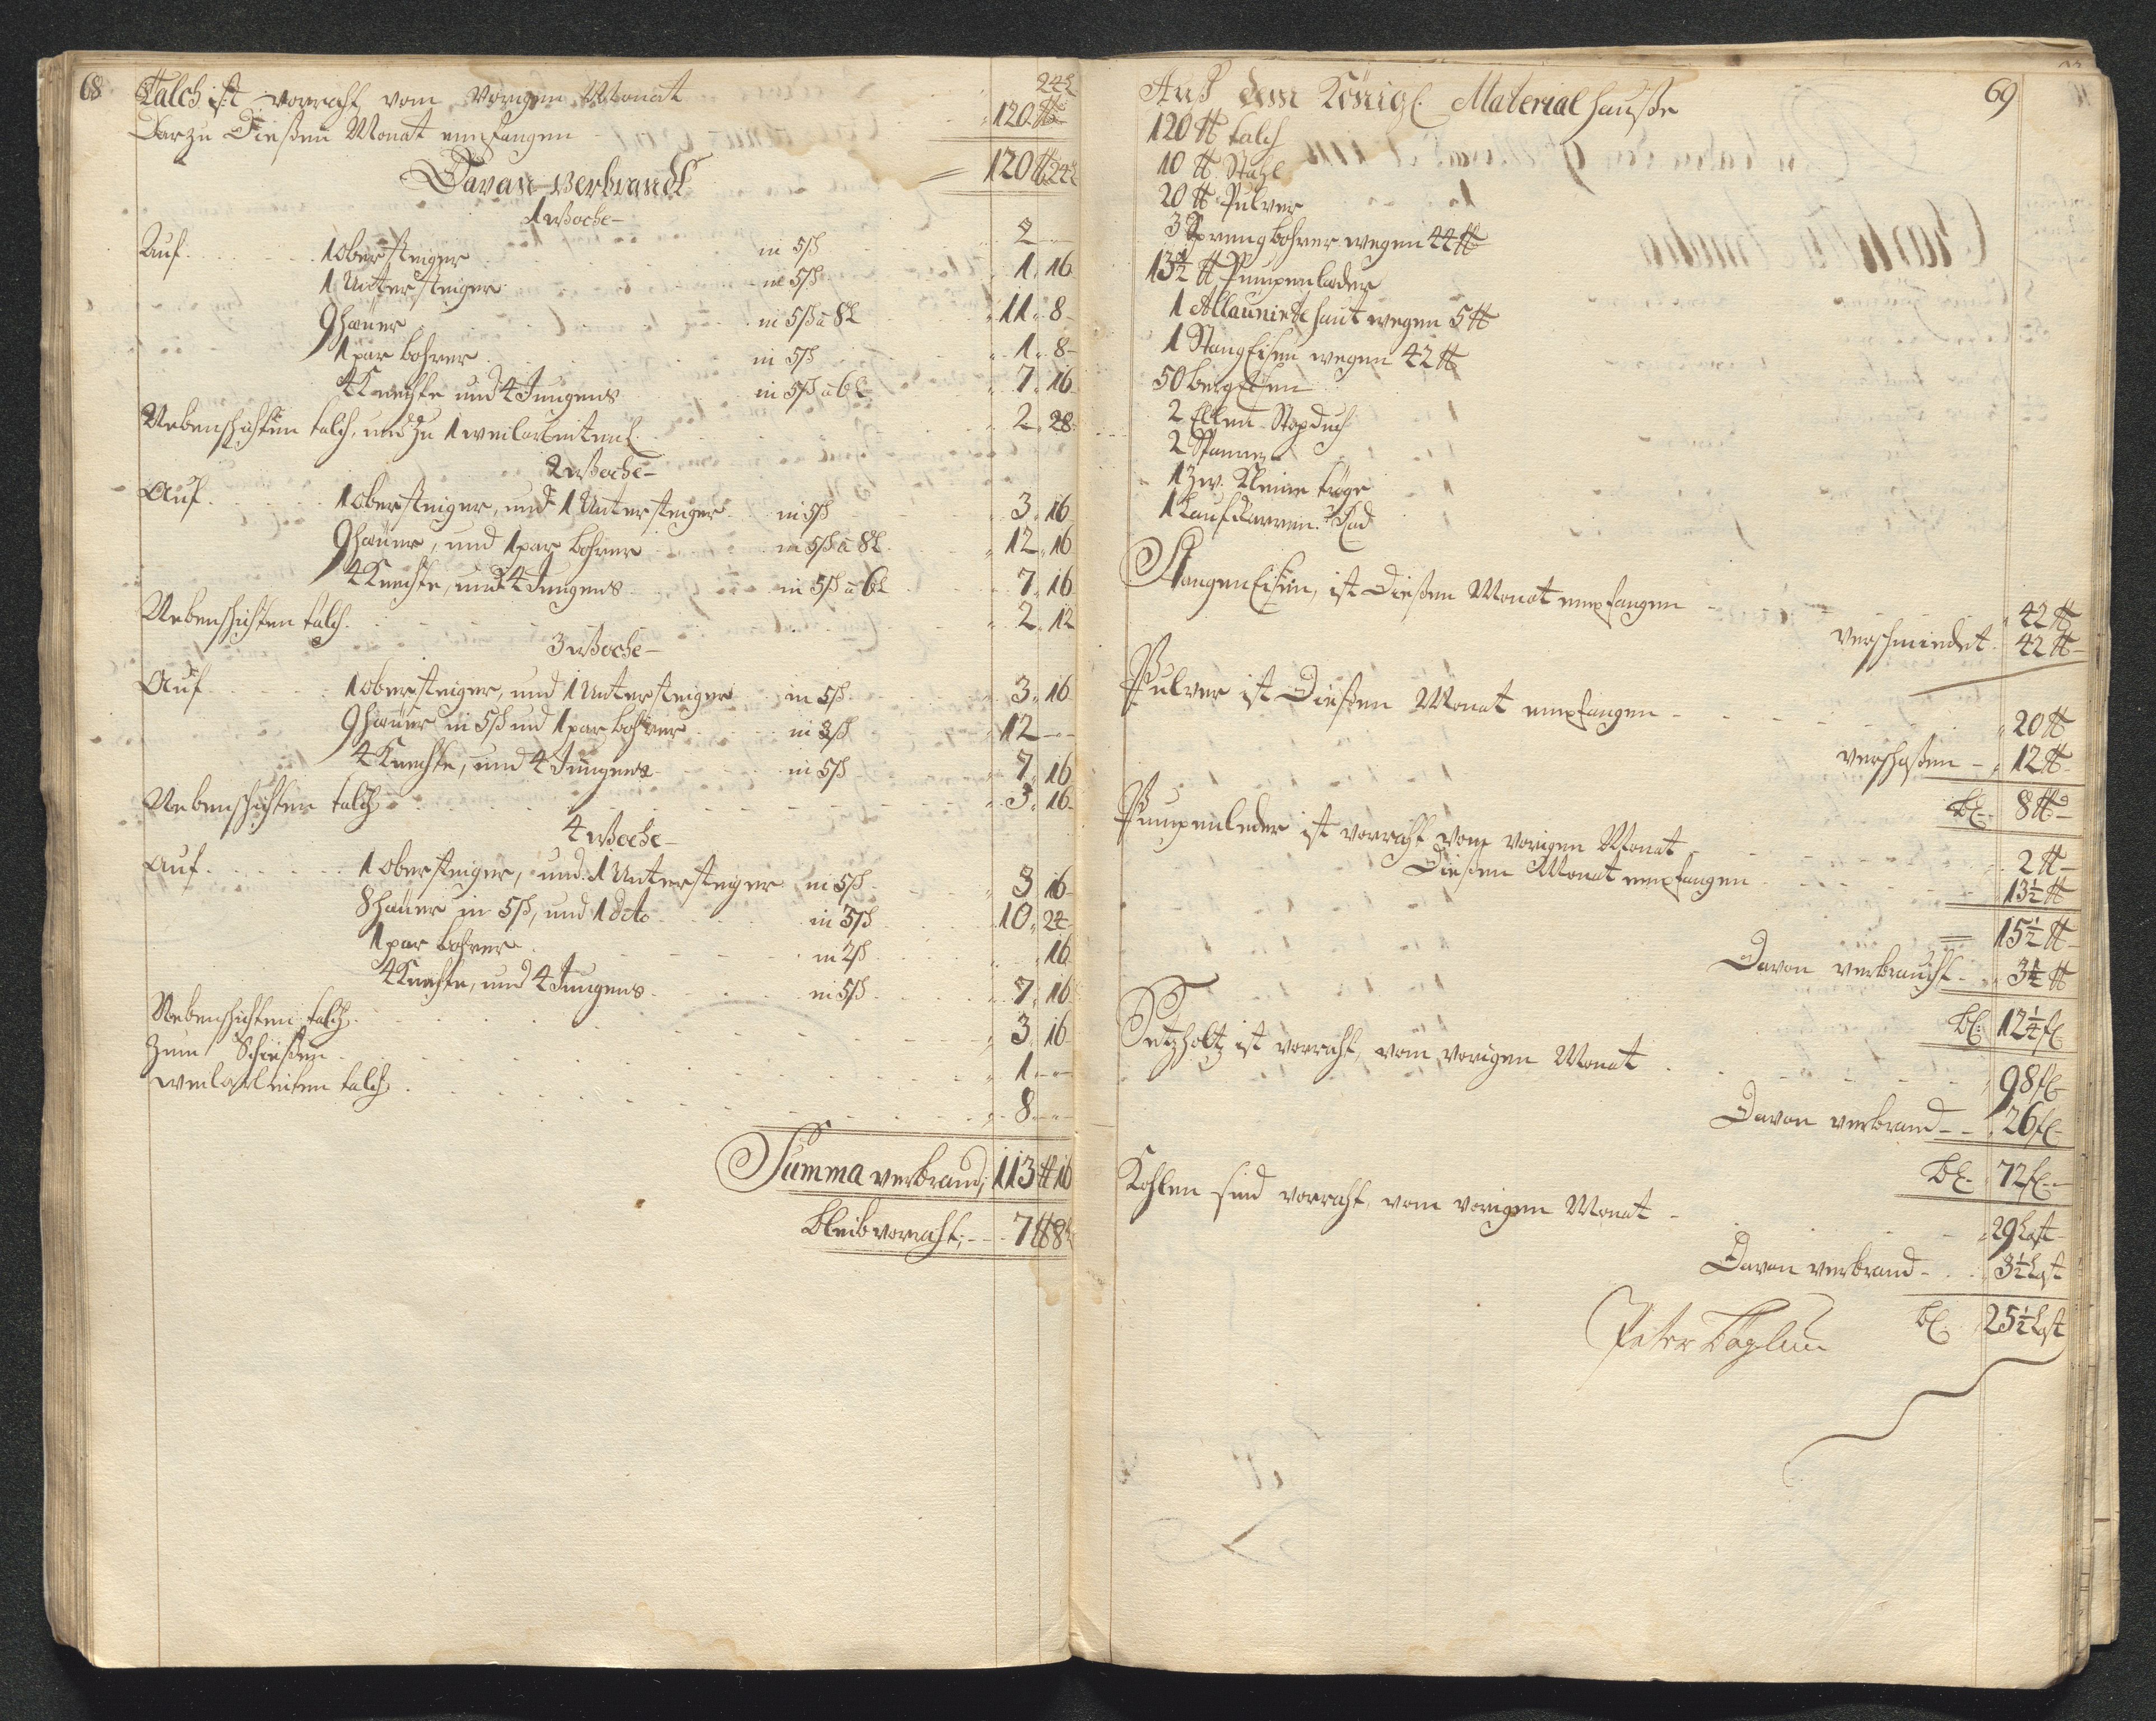 68
Talch ist vorraht vom vorigen Monat 24 L
Darzu Dießen Monat empfangen 120 ℔
120 ℔ 24 L
Davan verbrandt
1 Woche
Auf 1 obersteiger in 5 ß 2
1 Untersteiger in 5 ß 1 16
9 Haüer in 5 ß a 8 L 11 8
1 par bohrer in 5 ß 1 8
4 Knechte und 4 Jungens in 5 ß a 6 L 7 16
Nebenschichten talch, und zu 1 weilarbeitent 2 28
2 Woche
Auf 1 obersteiger, und 1 Untersteiger in 5 ß 3 16
9 Haüer, und 1 par bohrer in 5 ß a 8 L 12 16
4 Knechte, und 4 Jungens in 5 ß a 6 L 7 16
Nebenschichten talch 2 12
3 Woche
Auf 1 obersteiger, und 1 Untersteiger in 5 ß 3 16
9 Haüer in 5 ß und 1 par bohrer in 3 ß 12
4 Knechte, und 4 Jungens in 5 ß 7 16
Nebenschichten talch 3 16
4 Woche
Auf 1 obersteiger, und 1 Untersteiger in 5 ß 3 16
8 Haüer in 5 ß, und 1 dito in 3 ß 10 24
1 par bohrer in 2 ß 16
4 Knechte, und 4 Jungens in 5 ß 7 16
Nebenschichten talch 3 16
Zum Schießen 1
weilarbeiten talch 8
Summa verbrand; 113 ℔ 16
bleib vorraht; 7 ℔ 8 L
69
Auß dem Königl. Material Hauße
120 ℔ talch
10 ℔ Stahl
20 ℔ Pulver
3 Sprengbohrer wegen 44 ℔
13½ ℔ Pumpenlader
1 Allaunirte Haut wegen 5 ℔
1 Stang Eisen wegen 42 ℔
50 bergeisen
2 Ellen Stopduch
2 Spanne
1 Zw. Kleine tröge
1 Laufkarren Rad
Stangen Eisen, ist Dießen Monat empfangen 42 ℔
verschmiedet 42 ℔
Pulver ist Dießen Monat empfangen 20 ℔
verschoßen 12 ℔
bl. 8 ℔
Pumpenleder ist vorraht vom vorigen Monat 2 ℔
Dießen Monat empfangen 13½ ℔
15½ ℔
Davon verbraucht 3¼ ℔
bl. 12¼ ℔
Setzholtz ist vorraht, vom vorigen Monat 98 fl
Davon verbrand 26 fl
bl. 72 fl
Kohlen sind vorraht, vom vorigen Monat 29 Last
Davon verbrand 3½ Last
bl. 25½ Last
Peter